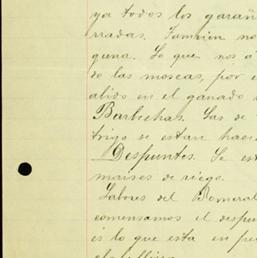 ya todos los garañ
rradas. Tambien no
quna. Lo que nos a
do las moscas, por e
abido en el ganado
Barbechos. Las de
trigo se estan hacie
Despuntes. Se est
maises de riego.
Labores del Temeral
comensamos el despu
es lo que esta en pe